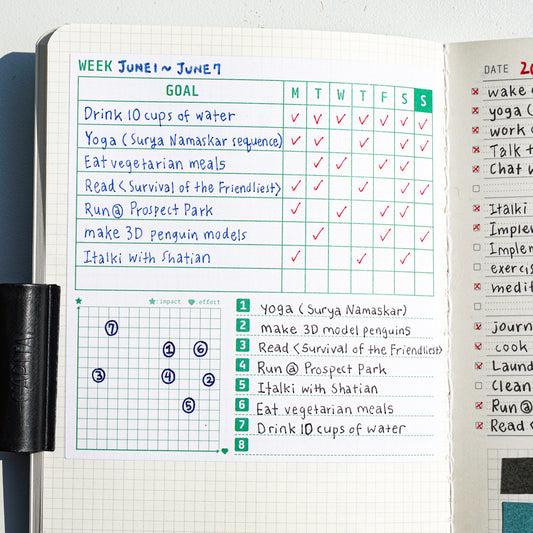 WEEK JUNE 1 ~ JUNE 7
GOAL M T W T F S S
Drink 10 cups of water ✓ ✓ ✓ ✓ ✓ ✓ ✓
Yoga (Surya Namaskar sequence) ✓ ✓ ✓ ✓ ✓
Eat vegetarian meals ✓ ✓ ✓ ✓
Read <Survival of the Friendliest> ✓ ✓ ✓ ✓ ✓
Run @ Prospect Park ✓ ✓ ✓ ✓
make 3D penguin models ✓ ✓ ✓
Italki with Shatian ✓ ✓ ✓
★:impact ♥:effort
7
1 6
3 4 2
5
1 Yoga (Surya Namaskar)
2 make 3D model penguins
3 Read <Survival of the Friendliest>
4 Run @ Prospect Park
5 Italki with Shatian
6 Eat vegetarian meals
7 Drink 10 cups of water
8
DATE 20
wake
yoga (
work
Talk
Chat
Italki
Implem
Implem
exercis
medit
journ
cook
Laund
Clean
Run @
Read <